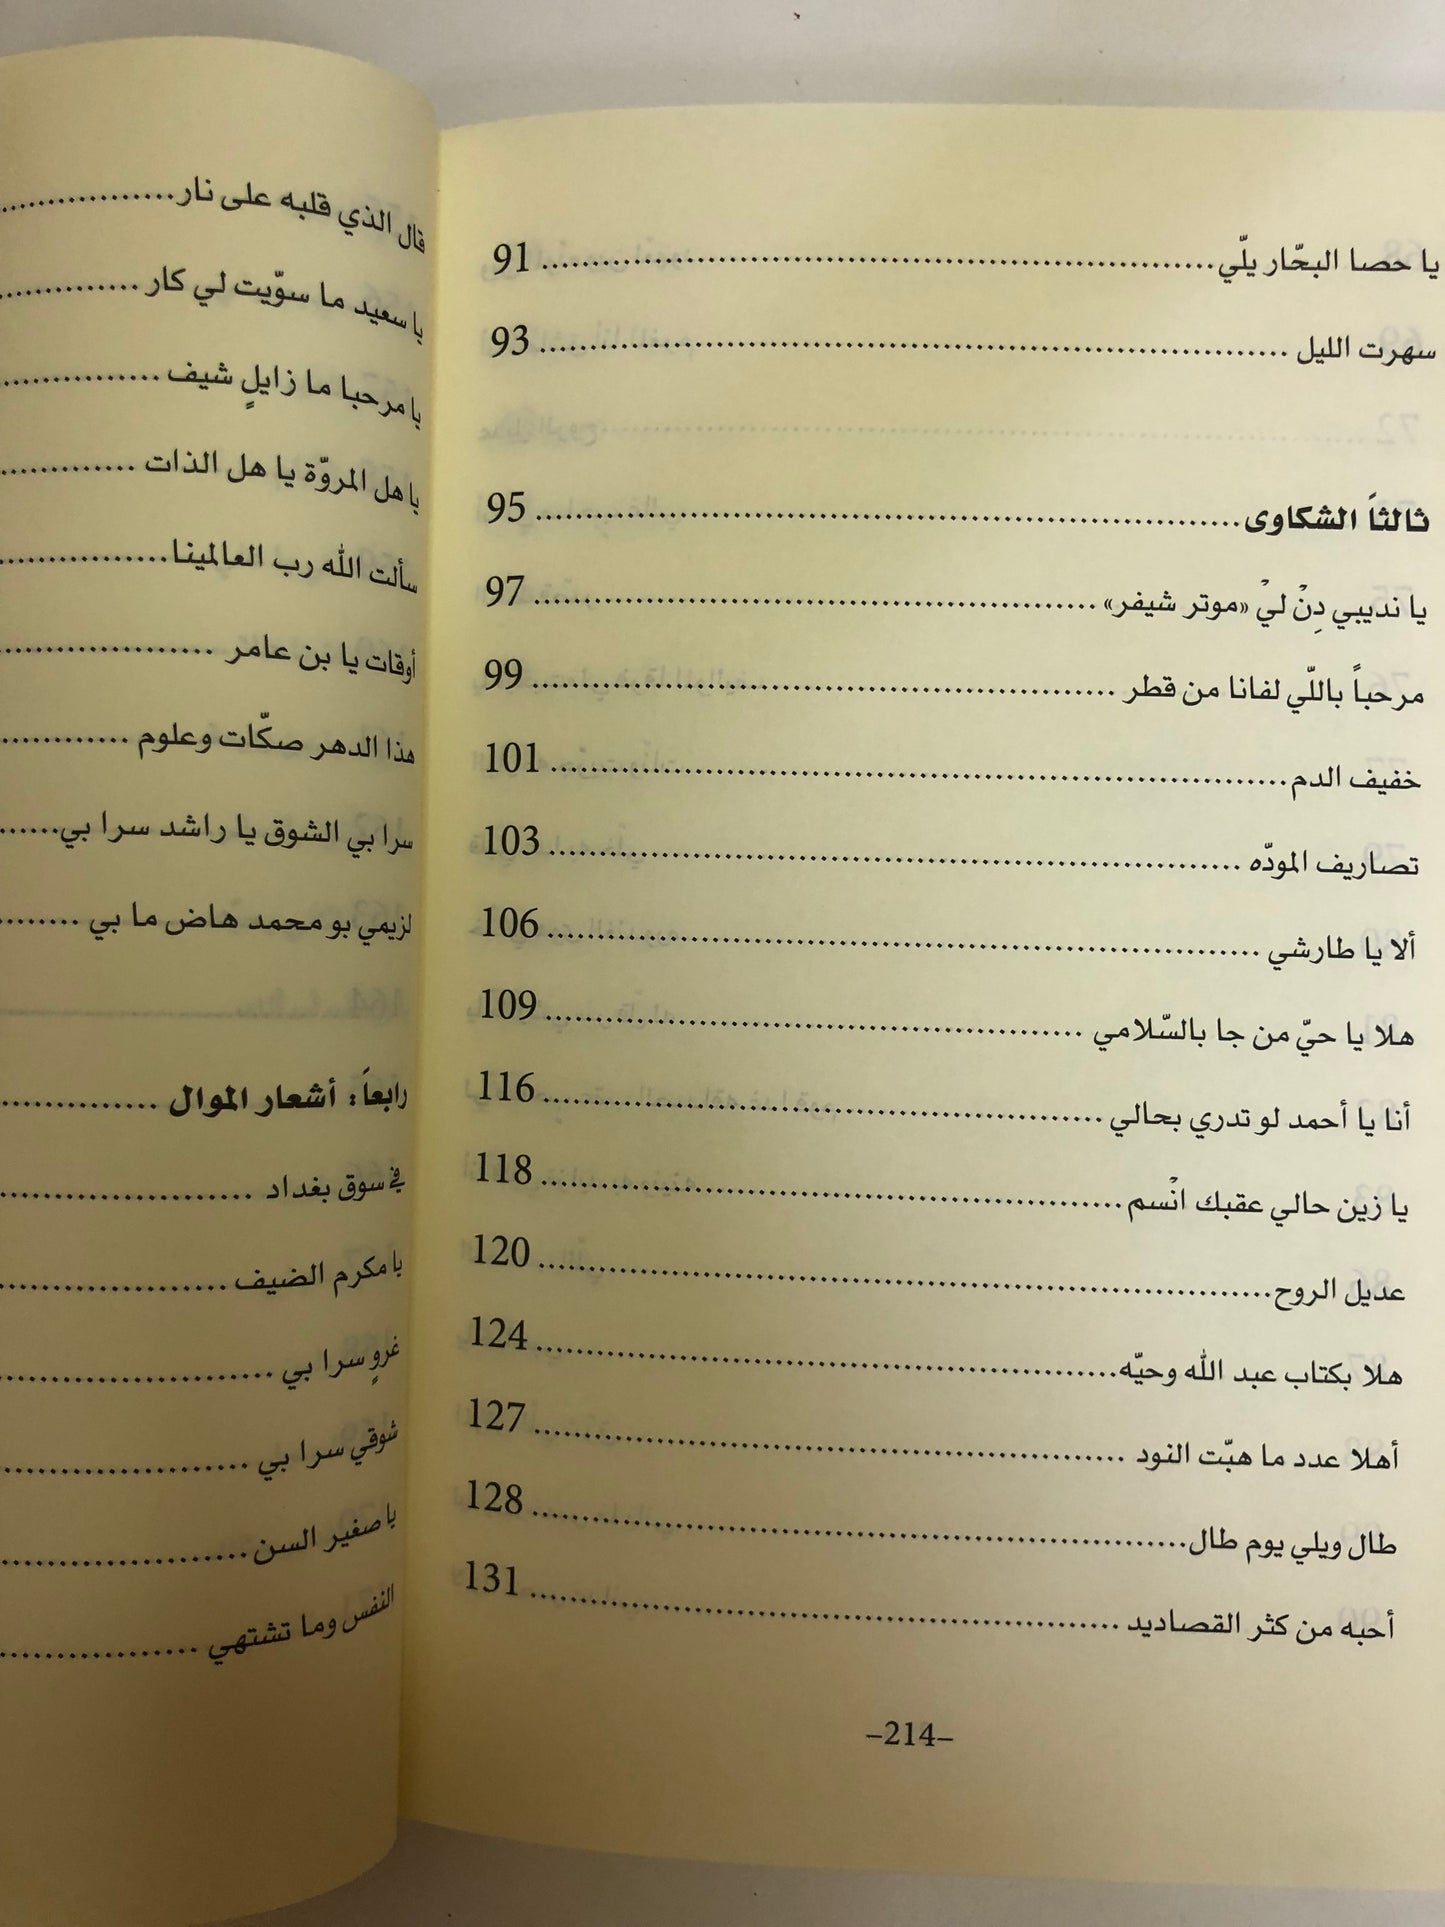 يا حصا البحّار يلّي............................................................ 91
سهرت الليل ............................................................ 93
ثالثاً الشكاوى............................................................ 95
يا نديبي دِنْ ليْ «موتر شيفر» ............................................................ 97
مرحباً باللّي لفانا من قطر ............................................................ 99
خفيف الدم............................................................ 101
تصاريف المودّه ............................................................ 103
ألا يا طارشي ............................................................ 106
هلا يا حيّ من جا بالسّلامي ............................................................ 109
أنا يا أحمد لو تدري بحالي ............................................................ 116
يا زين حالي عقبك انْسم ............................................................ 118
عديل الروح............................................................ 120
هلا بكتاب عبد الله وحيّه............................................................ 124
أهلا عدد ما هبّت النود ............................................................ 127
طال ويلي يوم طال............................................................ 128
أحبه من كثر القصاديد ............................................................ 131
–214–
قال الذي قلبه على نار..................
يا سعيد ما سوّيت لي كار ...............
يا مرحبا ما زايلٍ شيف .................
يا هل المروّة يا هل الذات ...............
سألت الله رب العالمينا..................
أوقات يا بن عامر ......................
هذا الدهر صكّات وعلوم ..............
سرا بي الشوق يا راشد سرا بي......
لزيمي بو محمد هاض ما بي ........
رابعاً: أشعار الموال ................
في سوق بغداد ..........................
يا مكرم الضيف ........................
غروٍ سرا بي ............................
شوقي سرا بي ..........................
يا صغير السن..........................
النفس وما تشتهي ....................